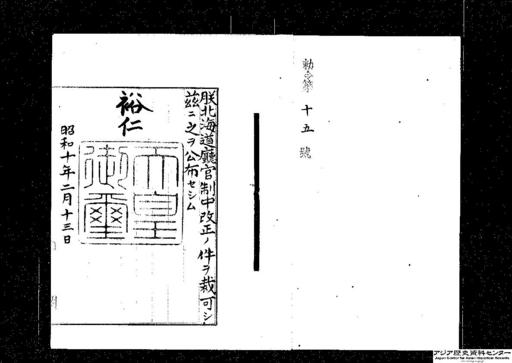 勅令第十五號
朕北海道廳官制中改正ノ件ヲ裁可シ
茲ニ之ヲ公布セシム
裕仁
天皇御璽
昭和十年二月十三日
アジア歴史資料センター
Japan Center for Asian Historical Records